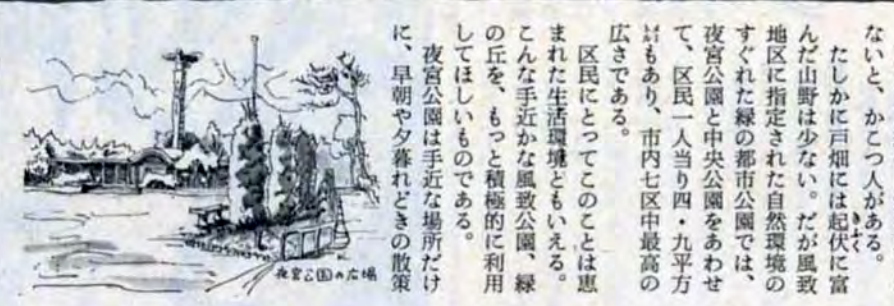 ないと、かこつ人がある。
たしかに戸畑には起伏に富
んだ山野は少ない。だが風致
地区に指定された自然環境の
すぐれた緑の都市公園では、
夜宮公園と中央公園をあわせ
て、区民一人当り四・九平方
㍍もあり、市内七区中最高の
広さである。
区民にとってこのことは恵
まれた生活環境ともいえる。
こんな手近かな風致公園、緑
の丘を、もっと積極的に利用
してほしいものである。
夜宮公園は手近な場所だけ
に、早朝や夕暮れどきの散策
きふく
夜宮公園の広場